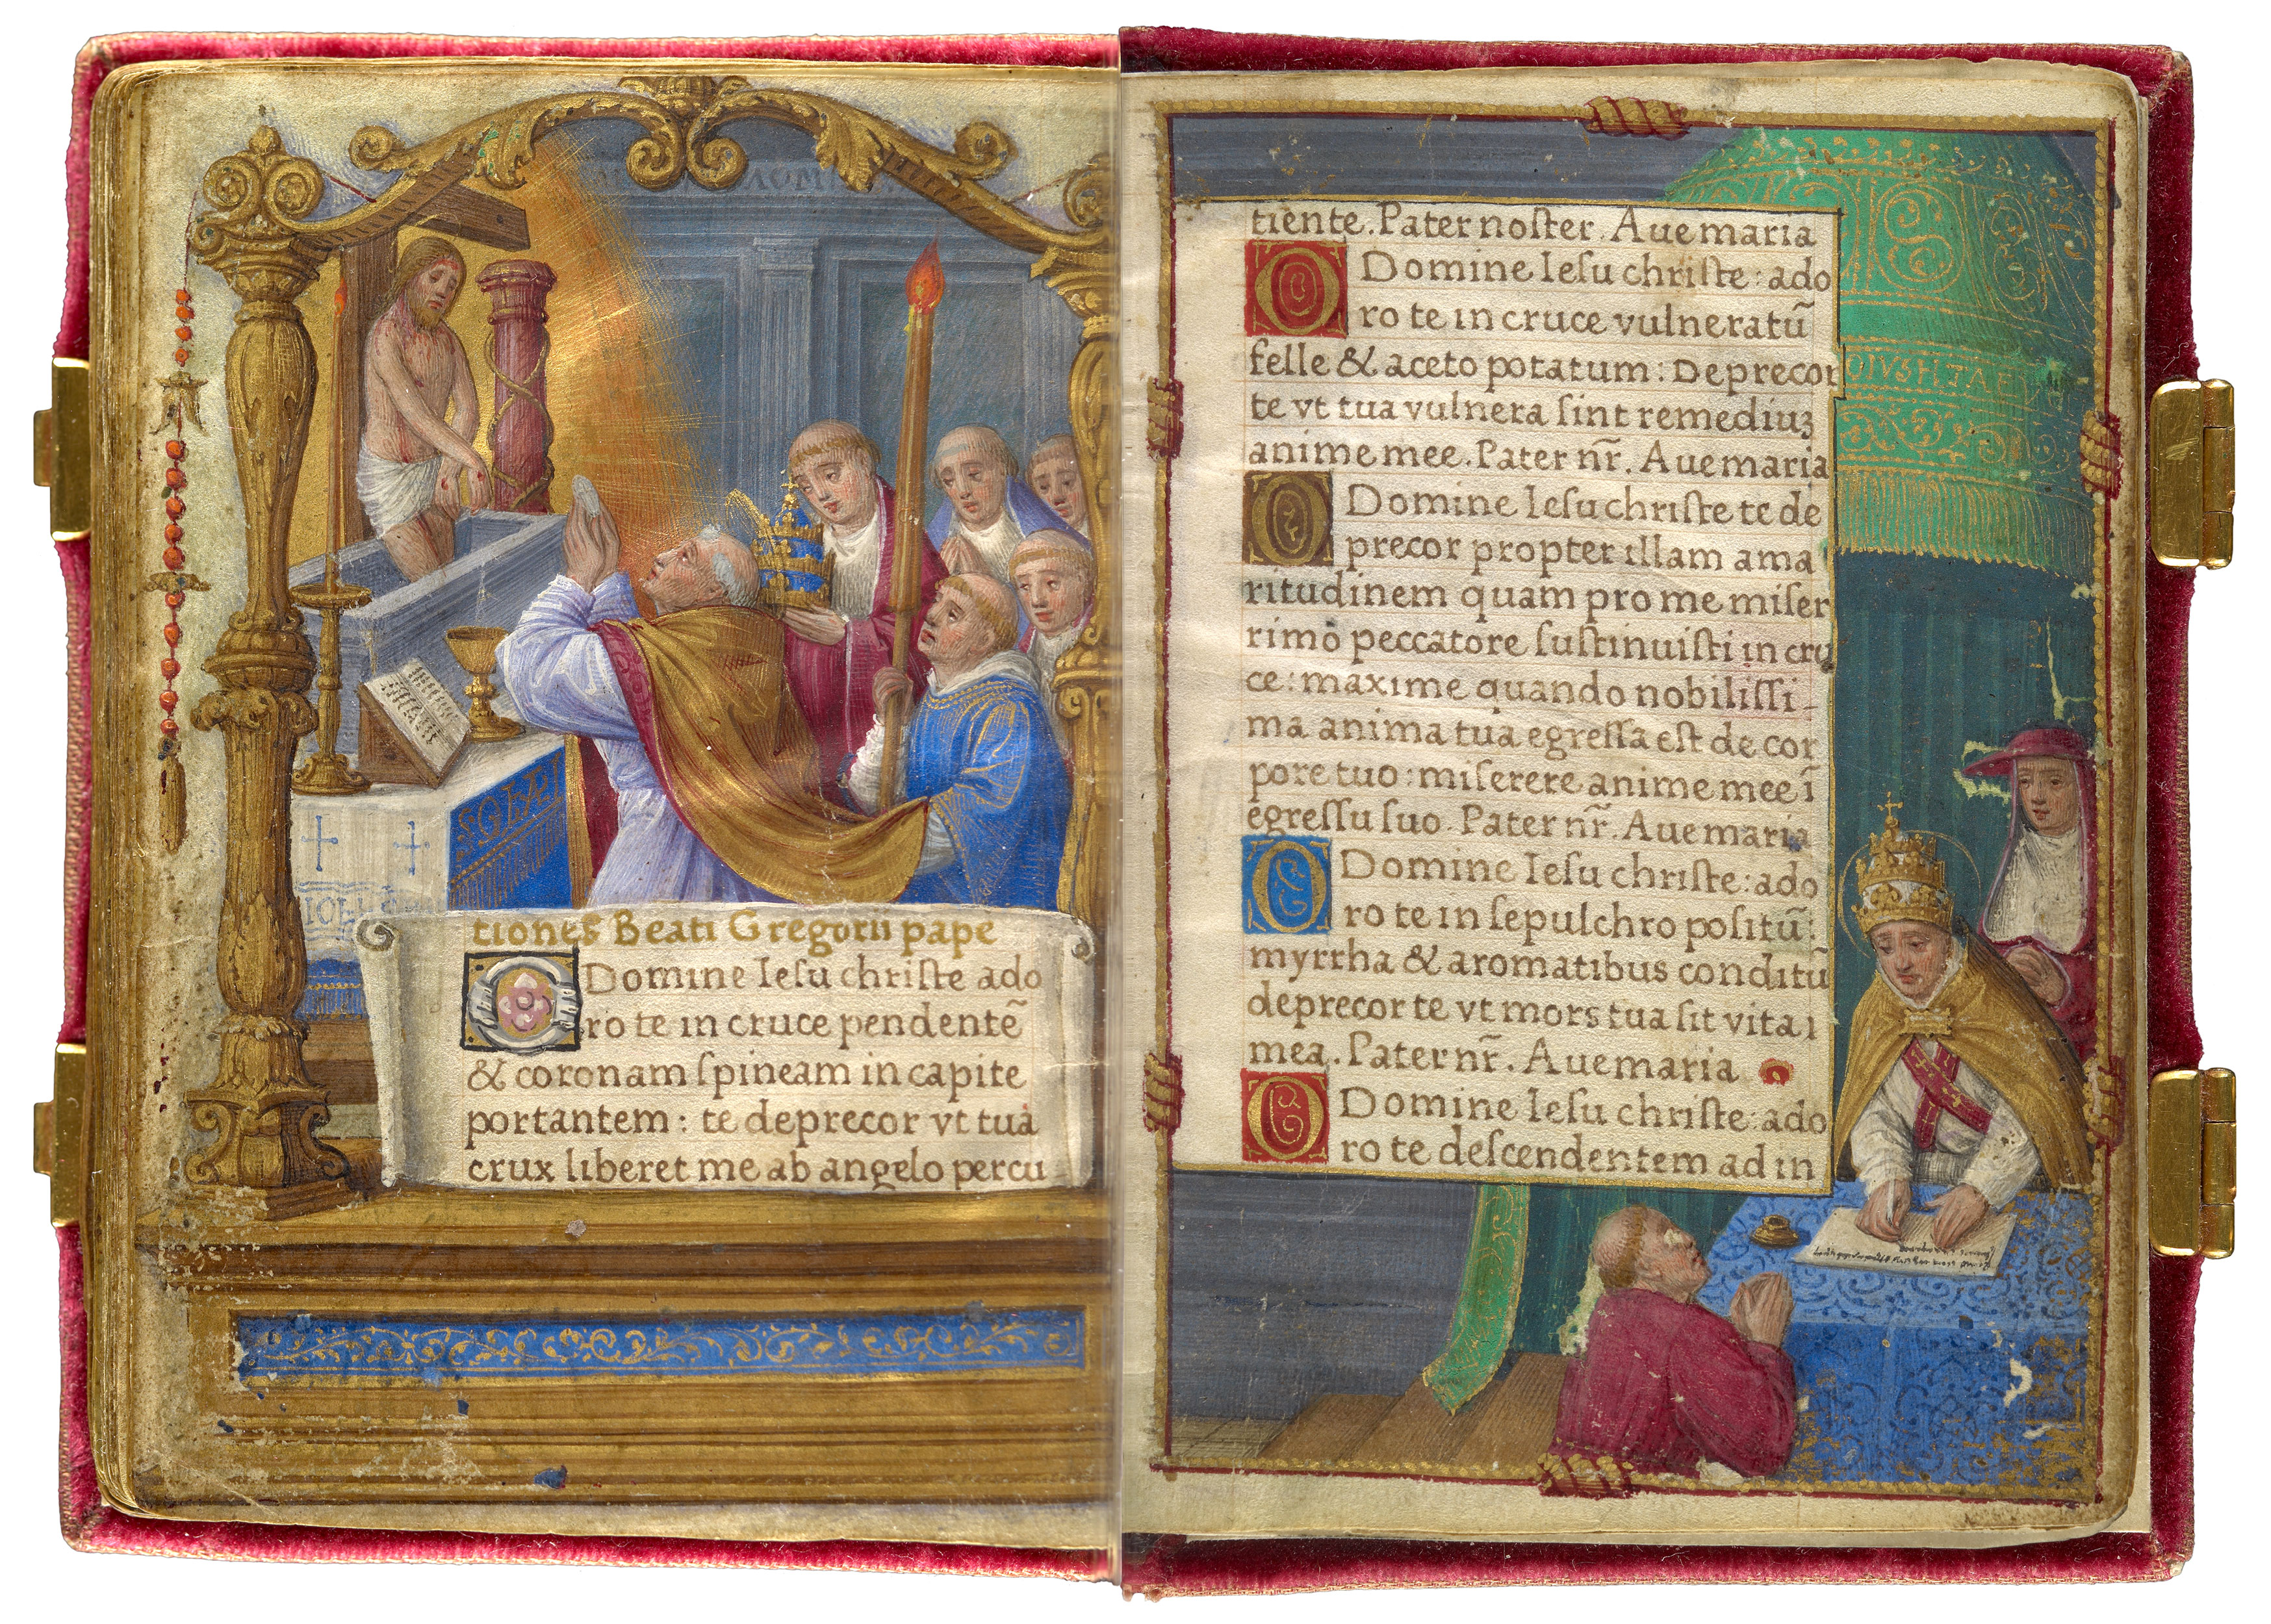 tiones Beati Gregorii pape
O Domine Iesu christe ado
ro te in cruce pendentē
& coronam spineam in capite
portantem: te deprecor vt tua
crux liberet me ab angelo percu
tiente. Pater noster. Aue maria
O Domine Iesu christe: ado
ro te in cruce vulneratū
felle & aceto potatum: Deprecor
te vt tua vulnera sint remediuꝫ
anime mee. Pater nr̄. Aue maria
O Domine Iesu christe te de
precor propter illam ama
ritudinem quam pro me miser
rimo peccatore sustinuisti in cru
ce: maxime quando nobilissi-
ma anima tua egressa est de cor
pore tuo: miserere anime mee ī
egressu suo. Pater nr̄. Aue maria
O Domine Iesu christe: ado
ro te in sepulchro positū:
myrrha & aromatibus conditū
deprecor te vt mors tua sit vita
mea. Pater nr̄. Aue maria
O Domine Iesu christe: ado
ro te descendentem ad in